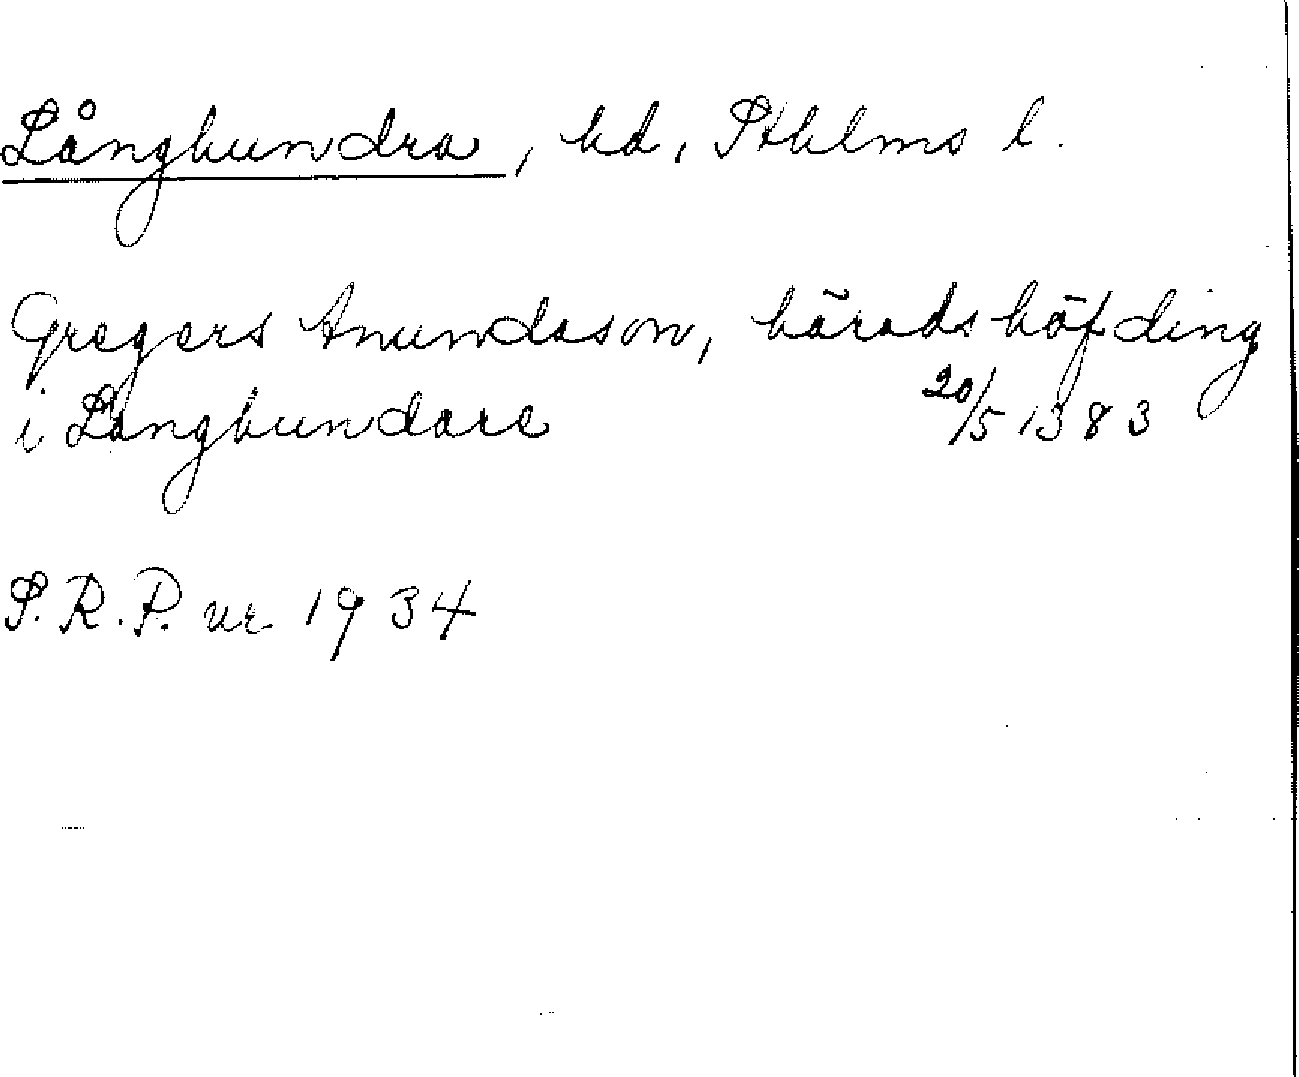 Långhundra, hd, Sthlms l.
Gregers Anundsson, häradshöfding
i Langhundare 20/5 1383
S.R.P. nr 1934